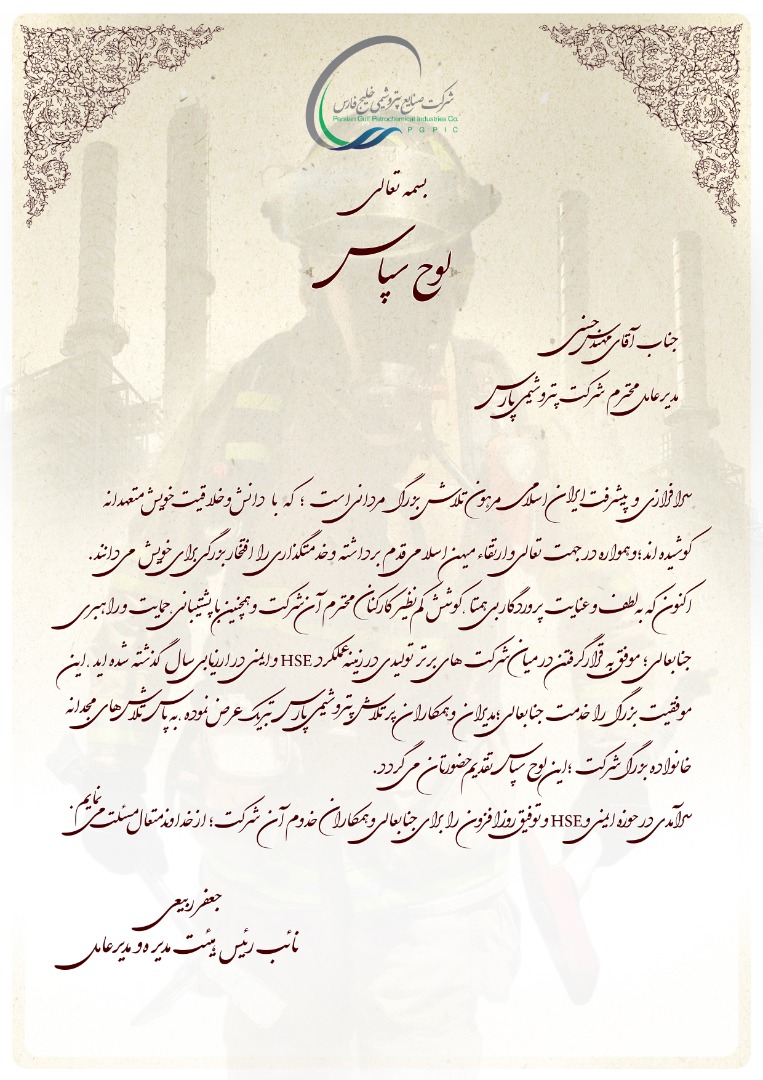 شرکت صنایع پتروشیمی خلیج فارس
Persian Gulf Petrochemical Industries Co.
PGPIC
بسمه تعالی
لوح سپاس
جناب آقای مهندس حسنی
مدیرعامل محترم شرکت پتروشیمی پارس
سرافرازی و پیشرفت ایران اسلامی مرهون تلاش بزرگ مردانی است ؛ که با دانش و خلاقیت خویش متعهدانه
کوشیده اند؛ و همواره در جهت تعالی و ارتقاء میهن اسلامی قدم برداشته و خدمتگذاری را افتخار بزرگی برای خویش می دانند.
اکنون که به لطف و عنایت پروردگار بی همتا ،کوشش کم نظیر کارکنان محترم آن شرکت و همچنین با پشتیبانی حمایت و راهبری
جنابعالی؛ موفق به قرار گرفتن در میان شرکت های برتر تولیدی در زمینه عملکرد HSE و ایمنی در ارزیابی سال گذشته شده اید .این
موفقیت بزرگ را خدمت جنابعالی؛ مدیران و همکاران پر تلاش پتروشیمی پارس تبریک عرض نموده ،به پاس تلاش های مجدانه
خانواده بزرگ شرکت ؛ این لوح سپاس تقدیم حضورتان می گردد.
سرآمدی در حوزه ایمنی و HSE و توفیق روزافزون را برای جنابعالی و همکاران خدوم آن شرکت ؛ از خداوند متعال مسئلت می نمایم.
جعفر ربیعی
نائب رئیس هیئت مدیره و مدیرعامل